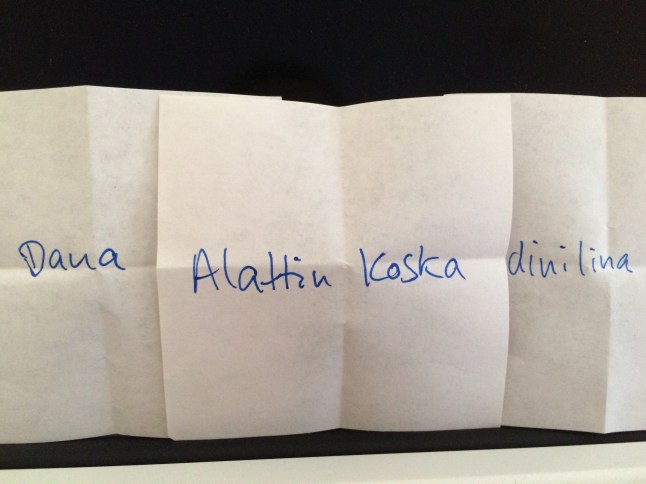 Dana Alattin Koska dinilina